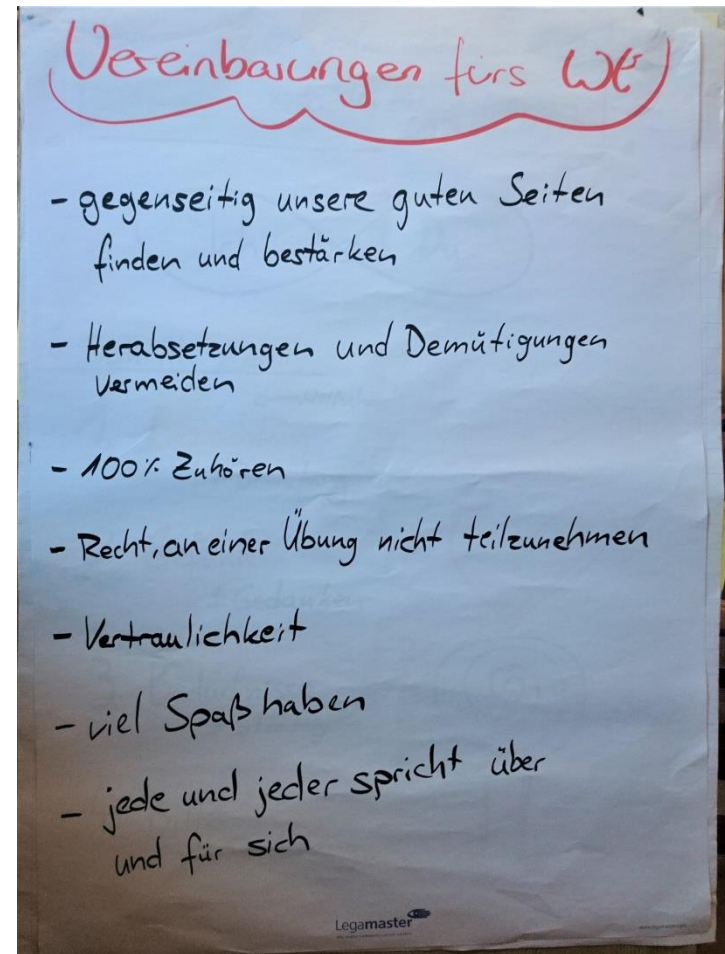 Vereinbarungen fürs WE
- gegenseitig unsere guten Seiten
finden und bestärken
- Herabsetzungen und Demütigungen
vermeiden
- 100% Zuhören
- Recht, an einer Übung nicht teilzunehmen
- Vertraulichkeit
- viel Spaß haben
- jede und jeder spricht über
und für sich
Legamaster